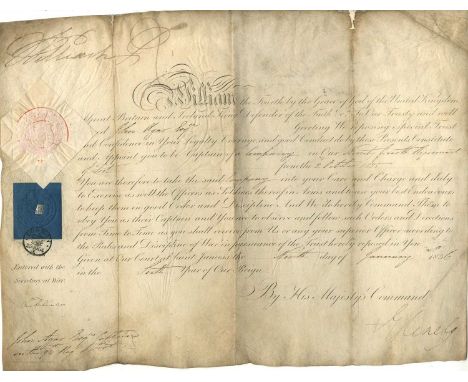 William R
William the Fourth by the Grace of God of the United Kingdom
of Great Britain and Ireland King Defender of the Faith &c To Our Trusty and well
Greeting We reposing special Trust
and Confidence in Your Loyalty Courage and good Conduct do by these Presents Constitute
and Appoint you to be Captain of a Company in Our Regiment
of Foot from the
You are therefore to take the said Company into your Care and Charge and duly
to Exercise as well the Officers as Soldiers thereof in Arms and to use your best Endeavours
to keep them in good Order and Discipline And We do hereby Command Them to
obey You as their Captain and You to observe and follow such Orders and Directions
from Time to Time as you shall receive from Us or any your superior Officer according to
the Rules and Discipline of War in pursuance of the Trust hereby reposed in You
Given at Our Court at Saint James's the day of January 1836
in the Sixth Year of Our Reign
By His Majesty's Command
Entered with the
Secretary at War
John Esqr Captain